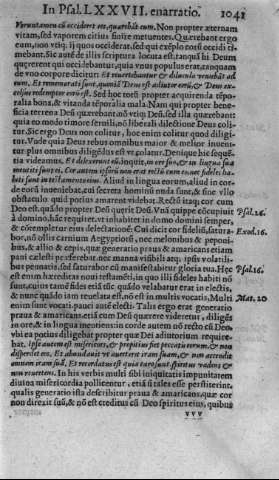 In Psal. LXXVII. enarratio. 1041
Verumtamen cù occideret eos, quærebãt eum. Non propter æternam
vitam, sed vaporem citius finire metuentes. Quærebant ergo
eum, non vtiq; ij quos occiderat, sed qui exēplo eorū occidi ti-
mebant. Sic autē de illis scriptura locuta est, tanquã hi Deum
quærerent qui occidebantur, quia vnus populus erat, & tanquam
de vno corpore dicitur: Et reuertebantur & diluculo veniebãt ad
eum. Et rememorati sunt, quoniã Deus est adiutor eorū, & Deus ex-
celsus redemptor eorū est. Sed hoc totū propter acquirenda tēpo-
ralia bona, & vitanda tēporalia mala. Nam qui propter bene-
ficia terrena Deū quærebant, nõ vtiq; Deū, sed illa quærebant:
quia eo modo timore seruili, nõ liberali dilectione Deus coli-
tur. Sic ergo Deus non colitur, hoc enim colitur quod diligi-
tur. Vnde quia Deus rebus omnibus maior & melior inueni-
tur, plus omnibus diligēdus est vt colatur. Denique hîc seque̅-
tia videamus. Et dilexerunt eū, inquit, in ore suo, & in lingua sua
mentiti sunt ei. Cor autem ipsorū non erat rectū cum eo, nec fideles ha-
biti sunt in testamento eius. Aliud in lingua eorum, aliud in cor-
de eorū inueniebat, cui secreta hominū nuda sunt, & sine vllo
obstaculo quid potius amarent videbat. Rectū itaq; cor cum
Deo est, quãdo propter Deū quærit Deū. Vnã quippe cõcupiuit Psal. 26.
à domino, hãc requiret, vt inhabitet in domo domini semper,
& cõtempletur eius delectationē. Cui dicit cor fideliũ, satura-
bor, nõ ollis carnium Ægyptiorũ, nec melonibus & peponi- Exod. 16.
bus, & alliis & cepis, quæ generatio praua & amaricans etiam
pani cælesti præferebat, nec manna visibili atq; ipsis volatili-
bus pennatis, sed saturabor cũ manifestabitur gloria tua. Hęc Psal. 16.
est enim hæreditas noui testamēti, in quo illi fideles habiti nõ
sunt, cuius tamē fides etiã tūc quãdo velabatur erat in electis,
& nunc quãdo iam reuelata est, nõ est in multis vocatis. Multi Mat. 20
enim sunt vocati, pauci autē electi. Talis ergo erat generatio
praua & amaricans, etiã cum Deū quærere videretur, diligēs
in ore, & in lingua mentiens: in corde autem nõ recto cũ Deo,
vbi ea potius diligebat propter quæ Dei adiutorium require-
bat. Ipse autem est misericors, & propitius fiet peccatis eorum, & non
disperdet eos. Et abundauit vt auerteret iram suam, & non accendit
omnem iram suã. Et recordatus est quia caro sunt, spiritus vadens &
non reuertens. In his verbis multi sibi iniquitatis impunitatem
diuina misericordia pollicentur, etiã si tales esse perstiterint,
qualis generatio ista describitur praua & amaricans, quæ cor
non direxit suū, & nõ est creditus cũ Deo spiritus eius, quibus
VVV